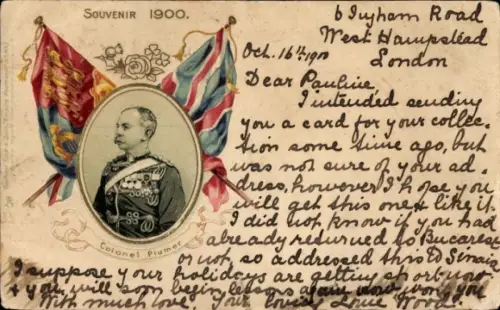 SOUVENIR 1900.
6 Ingham Road
West Hampstead
London
Oct. 16th 1900
Dear Pauline,
I intended sending
you a card for your collec-
tion some time ago, but
was not sure of your ad-
dress, however I hope you
will get this one & like it
I did not know if you had
already returned to Bucarest
or not, so addressed this to Sinaia
I suppose your holidays are getting short now
& you will soon begin lessons again now, won't you
With much love. Your loving Wood.
Colonel Plumer